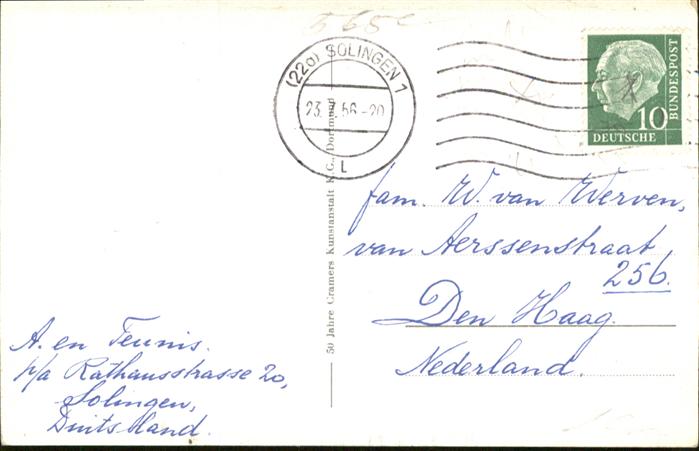 565c
(22a) SOLINGEN 1
23. 56-20
L
DEUTSCHE
BUNDESPOST
10
50 Jahre Cramers Kunstanstalt K.G., Dortmund
fam. W. van Werven,
van Aerssenstraat
256.
Den Haag.
Nederland.
A. en Teunis.
p/a Rathausstrasse 20,
Solingen,
Duitsland.